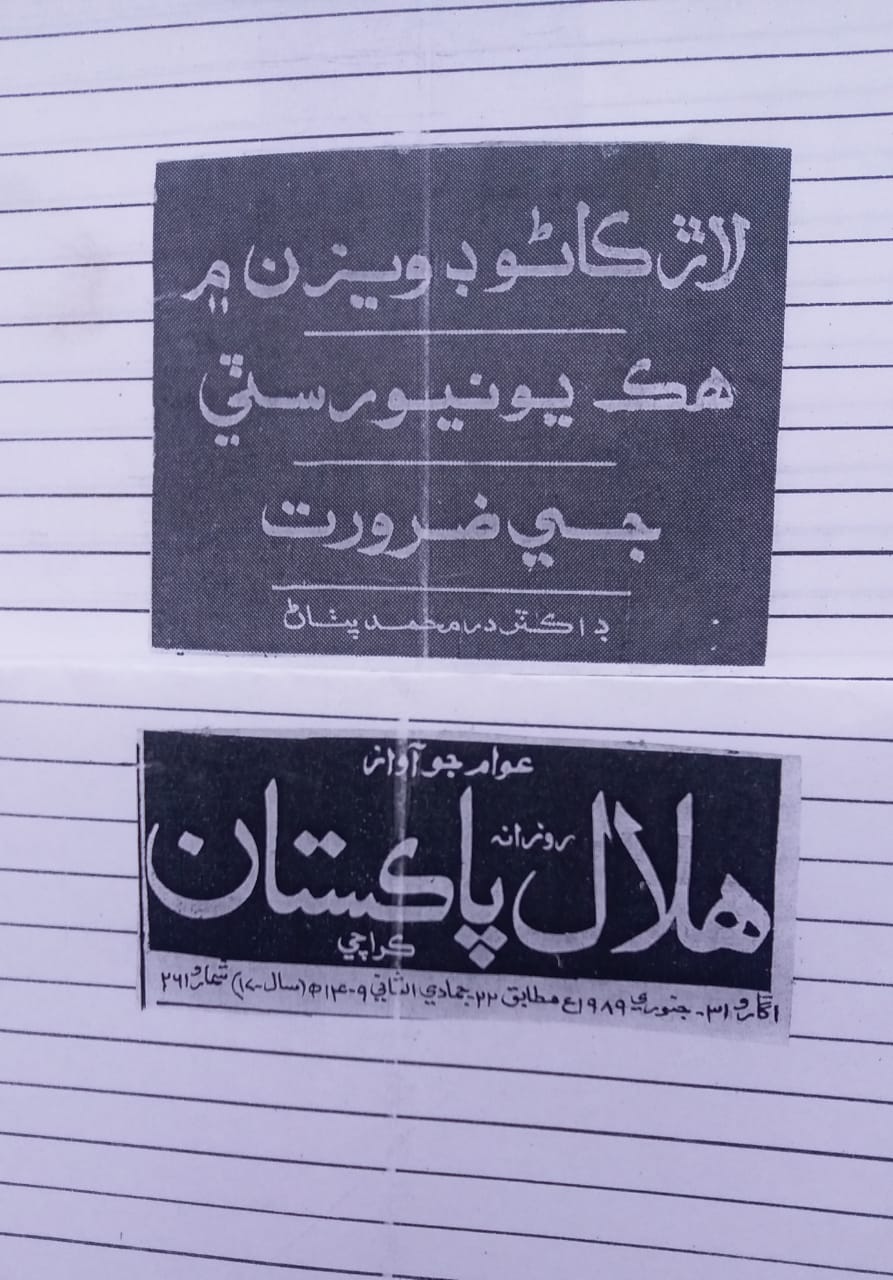 لاڙڪاڻو ڊويزن ۾
هڪ يونيورسٽي
جي ضرورت
ڊاڪٽر در محمد پٺاڻ
عوام جو آواز
روزانه
هلال پاڪستان
ڪراچي
اڱارو ٣١- جنوري ١٩٨٩ع مطابق ٢٢- جمادي الثاني ١٤٠٩ھ (سال-١٧) شمارو ٢٦١